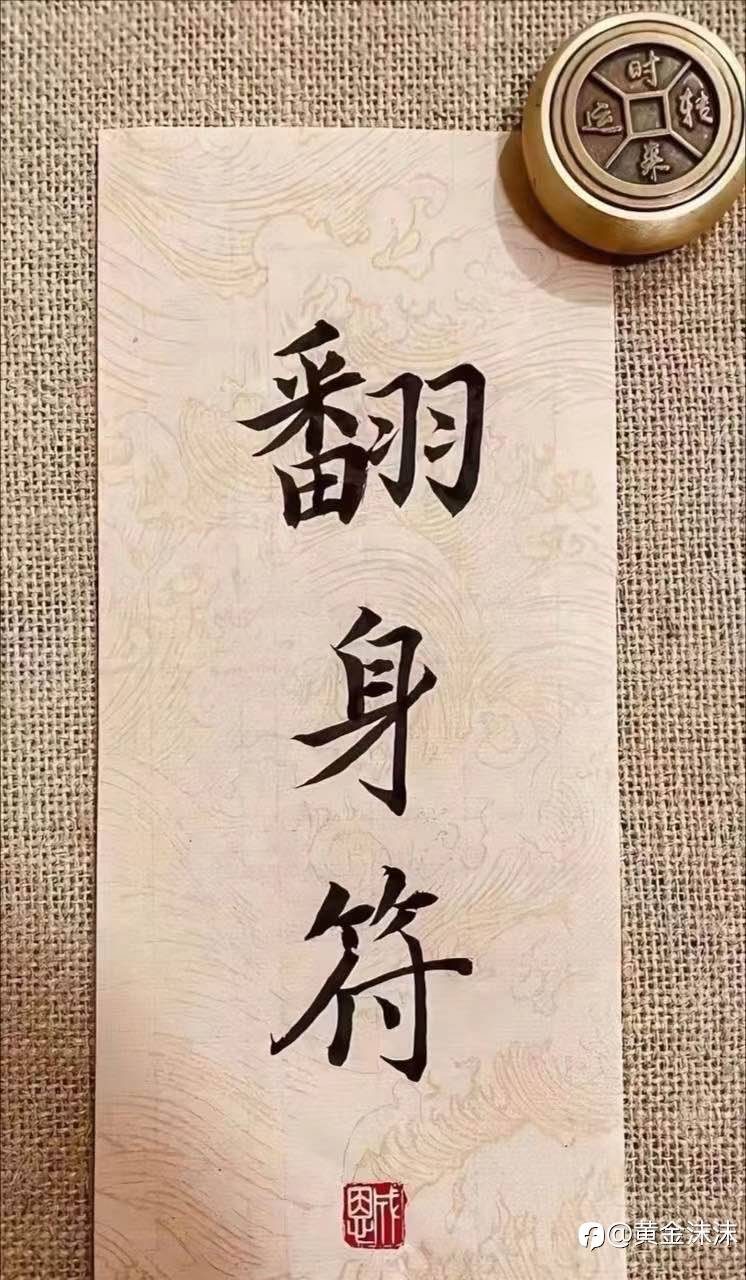 翻身符
时来运转
@黄金沫沫